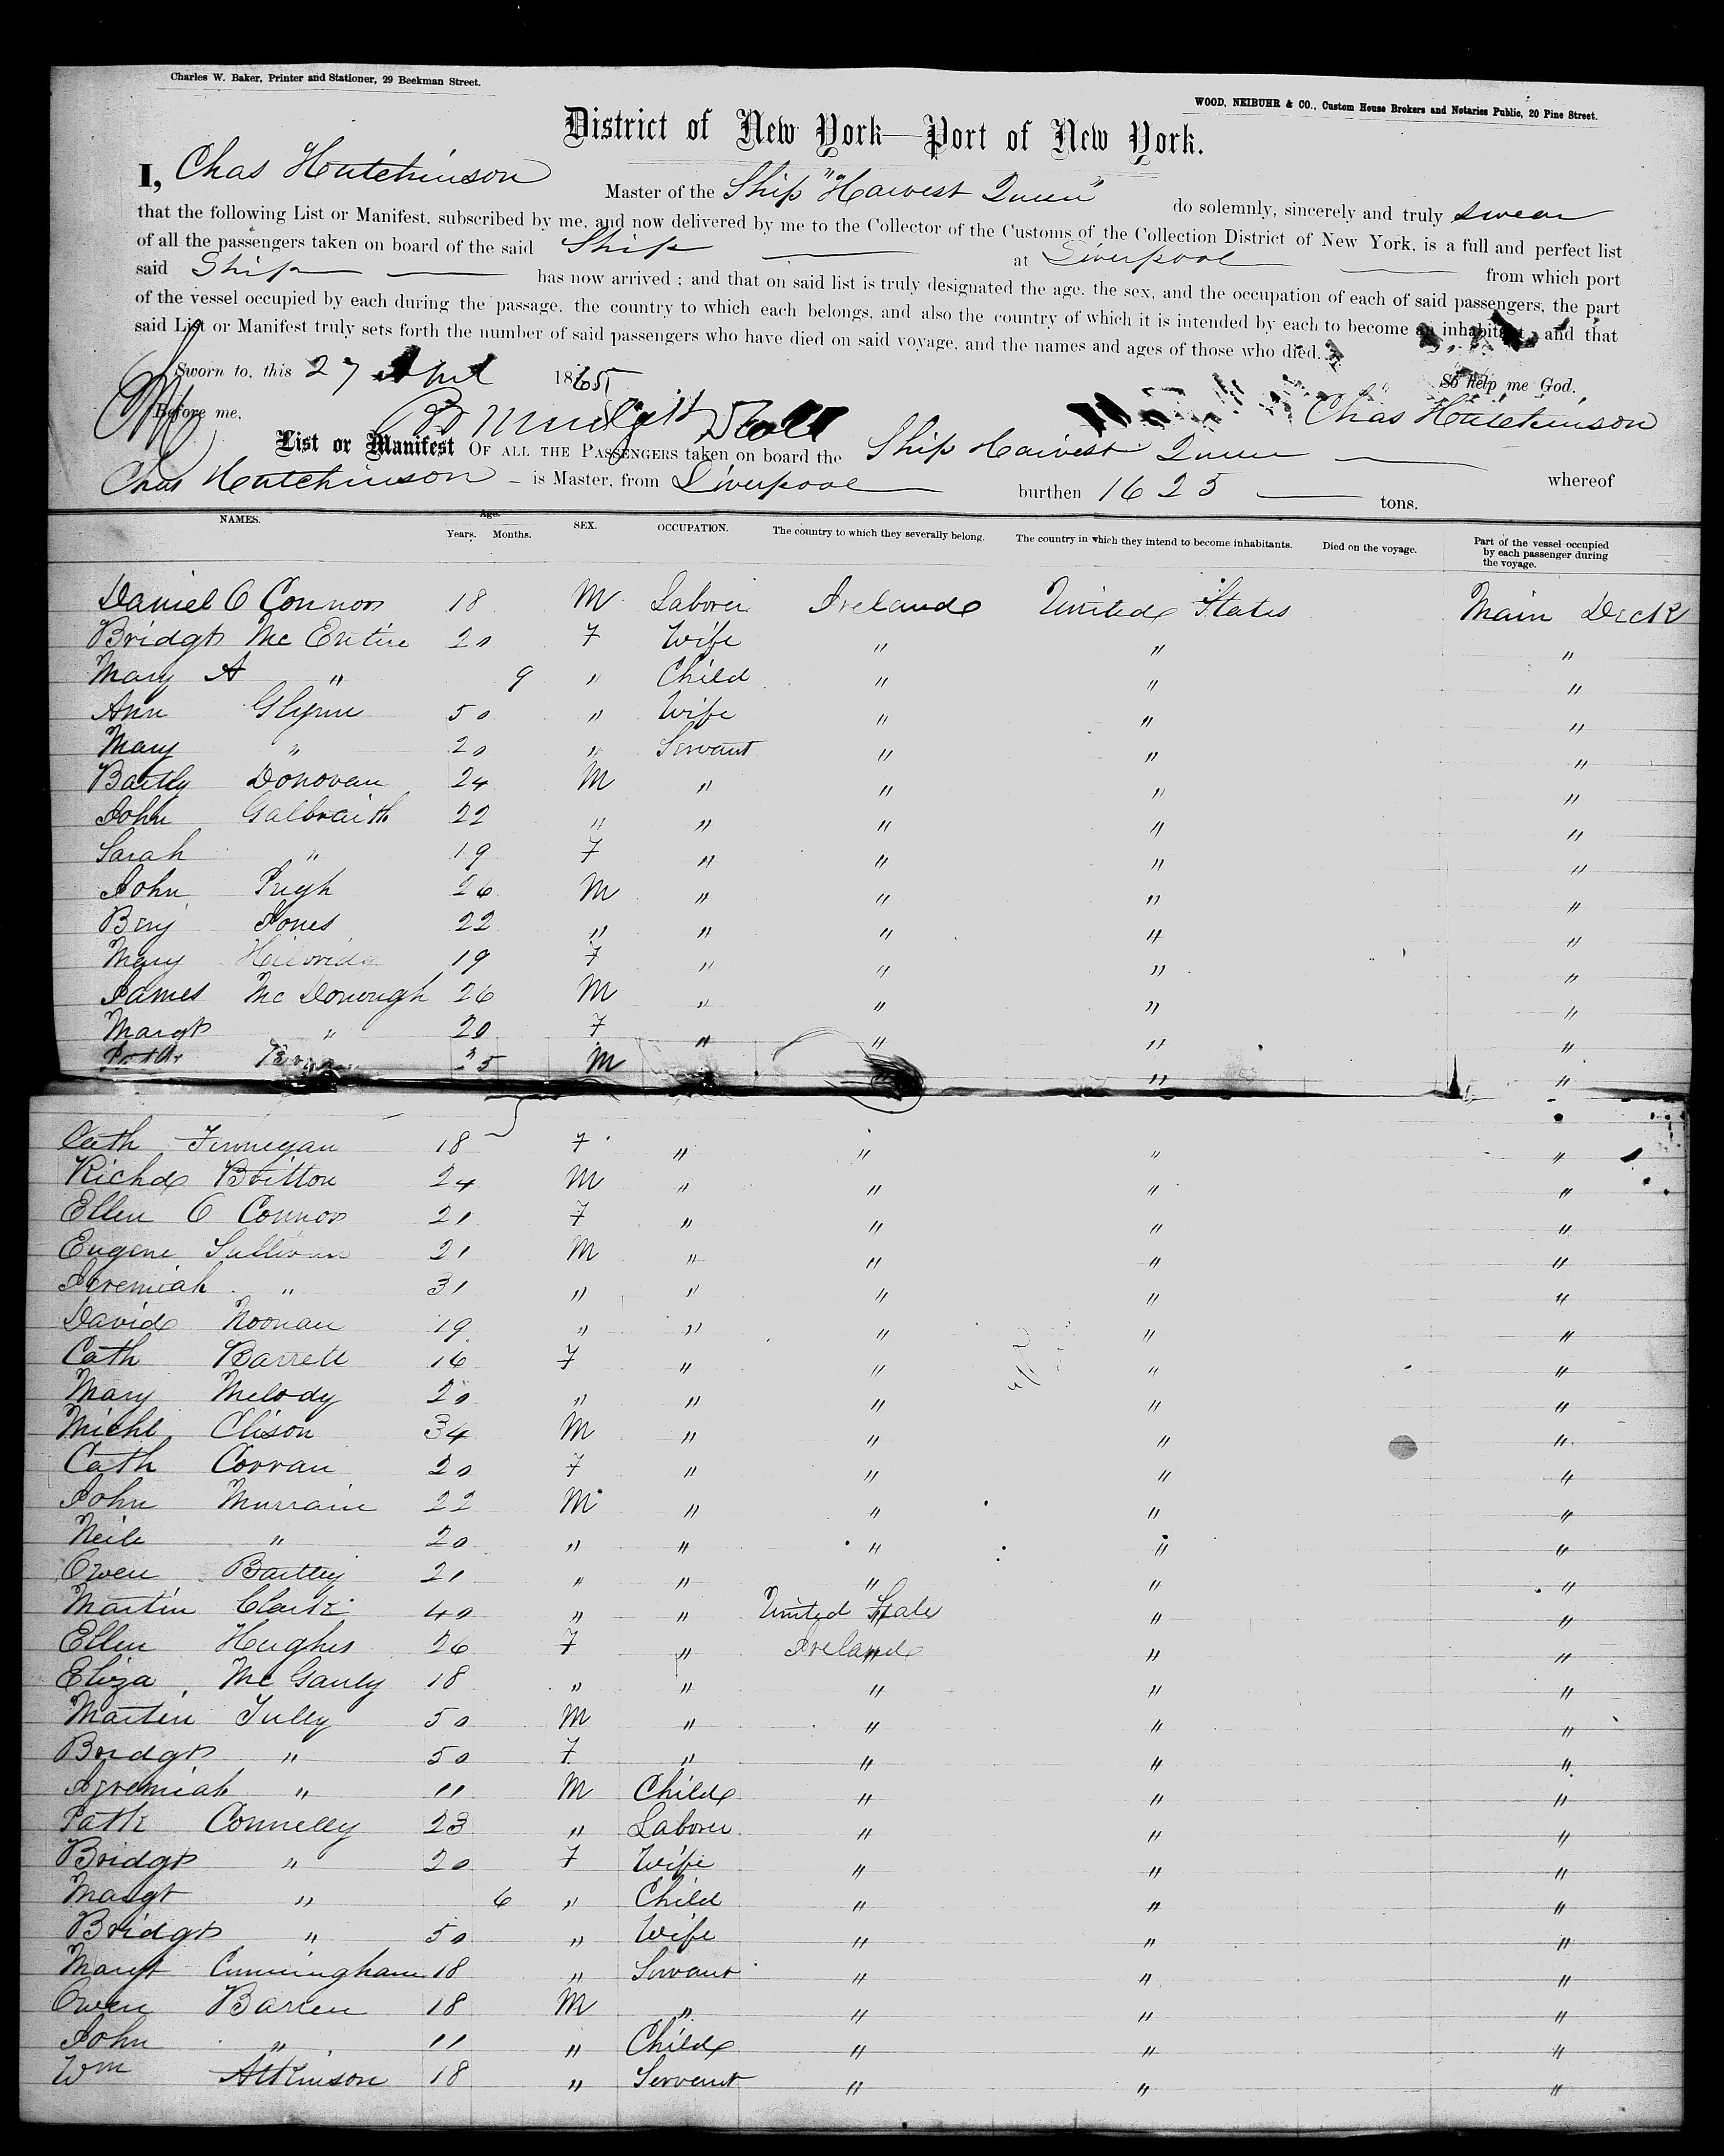 Charles W. Baker, Printer and Stationer, 29 Beekman Street.
WOOD, NEIBUHR & CO., Custom House Brokers and Notaries Public, 20 Pine Street.
District of New York—Port of New York.
I, Chas Hutchinson Master of the Ship "Harvest Queen" do solemnly, sincerely and truly swear
that the following List or Manifest, subscribed by me, and now delivered by me to the Collector of the Customs of the Collection District of New York, is a full and perfect list
of all the passengers taken on board of the said Ship at Liverpool from which port
said Ship has now arrived ; and that on said list is truly designated the age, the sex, and the occupation of each of said passengers, the part
of the vessel occupied by each during the passage, the country to which each belongs, and also the country of which it is intended by each to become an inhabitant ; and that
said List or Manifest truly sets forth the number of said passengers who have died on said voyage, and the names and ages of those who died.
Sworn to, this 27 April 1865 So help me God.
Before me, Chas Hutchinson
List or Manifest OF ALL THE PASSENGERS taken on board the Ship Harvest Queen whereof
Chas Hutchinson is Master, from Liverpool burthen 1625 tons.
NAMES. Age. Years. Months. SEX. OCCUPATION. The country to which they severally belong. The country in which they intend to become inhabitants. Died on the voyage. Part of the vessel occupied by each passenger during the voyage.
Daniel O Connor 18 M Laborer Ireland United States Main Deck
Bridgt Mc Entire 20 F Wife " " "
Mary A " 9 " Child " " "
Ann Glynn 50 " Wife " " "
Mary " 20 " Servant " " "
Bartly Donovan 24 M " " " "
John Galbraith 22 " " " " "
Sarah " 19 F " " " "
John Pugh 26 M " " " "
Benj Jones 22 " " " " "
Mary 19 F " " " "
James Mc Donough 26 M " " " "
Margt " 20 F " " " "
M " "
Cath Finnegan 18 F " " " "
Richd Britton 24 M " " " "
Ellen O Connor 21 F " " " "
Eugene Sullivan 21 M " " " "
Jeremiah " 31 " " " " "
David Noonan 19 " " " " "
Cath Barrett 16 F " " " "
Mary Melody 20 " " " " "
Michl Clison 34 M " " " "
Cath Corran 20 F " " " "
John Murrain 22 M " " " "
Neile " 20 " " " " "
Owen Bartley 21 " " " " "
Martin Clark 40 " " United State " "
Ellen Hughes 26 F " Ireland " "
Eliza Mc Gauly 18 " " " " "
Martin Tully 50 M " " " "
Bridgt " 50 F " " " "
Jeremiah " 11 M Child " " "
Patk Connelly 23 " Laborer " " "
Bridgt " 20 F Wife " " "
Margt " 6 " Child " " "
Bridgt " 50 " Wife " " "
Margt Cunningham 18 " Servant " " "
Owen Barren 18 M " " " "
John " 11 " Child " " "
Wm Atkinson 18 " Servant " " "